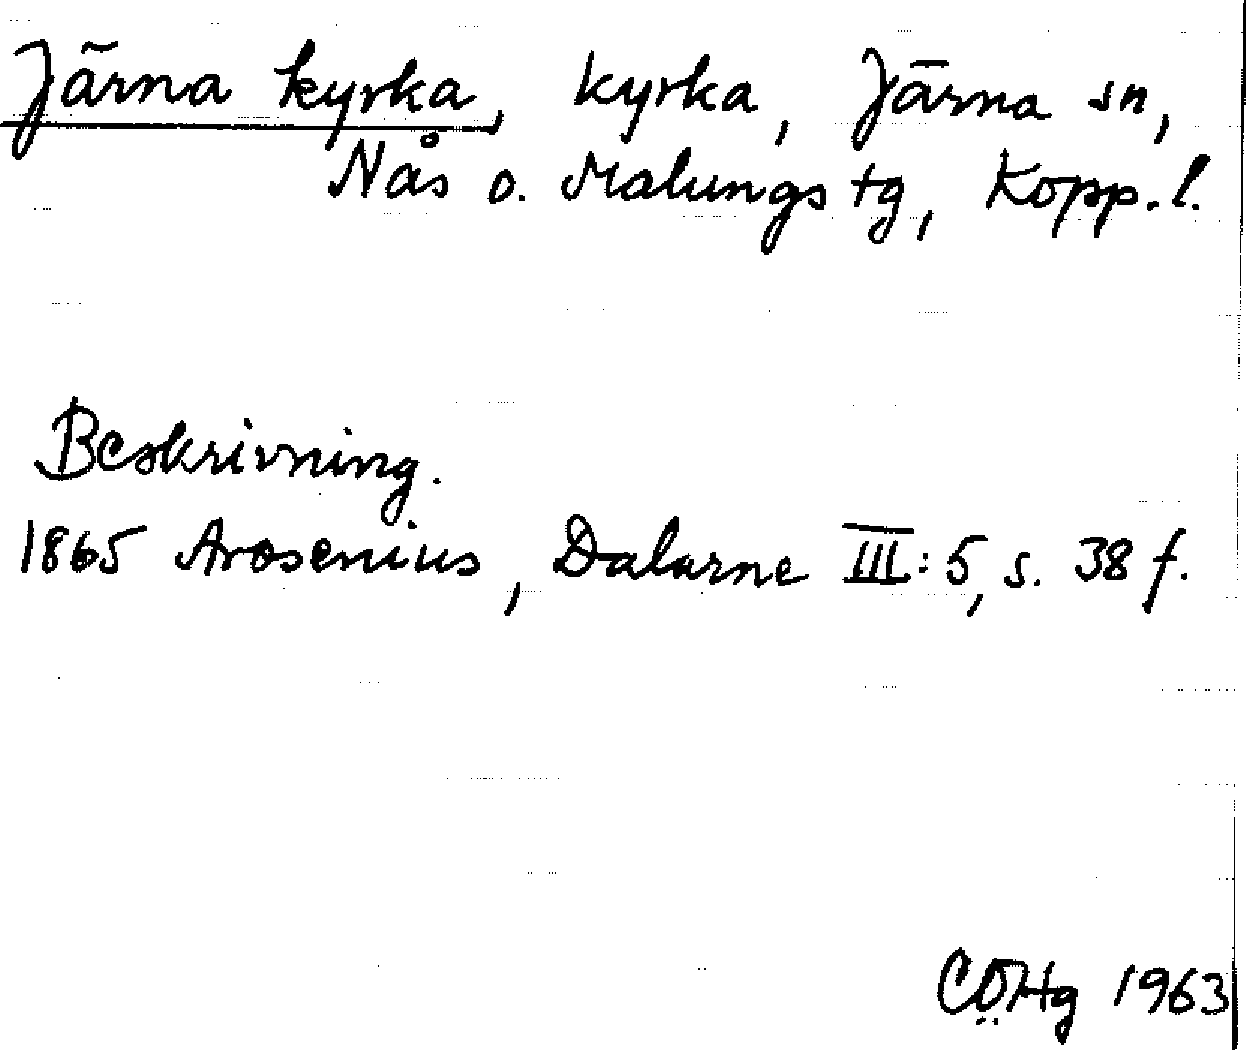 Järna kyrka, kyrka, Järna sn,
Nås o. Malungs tg, Kopp. l.
Beskrivning.
1865 Arosenius, Dalarne III:5, s. 38 f.
CÖHg 1963